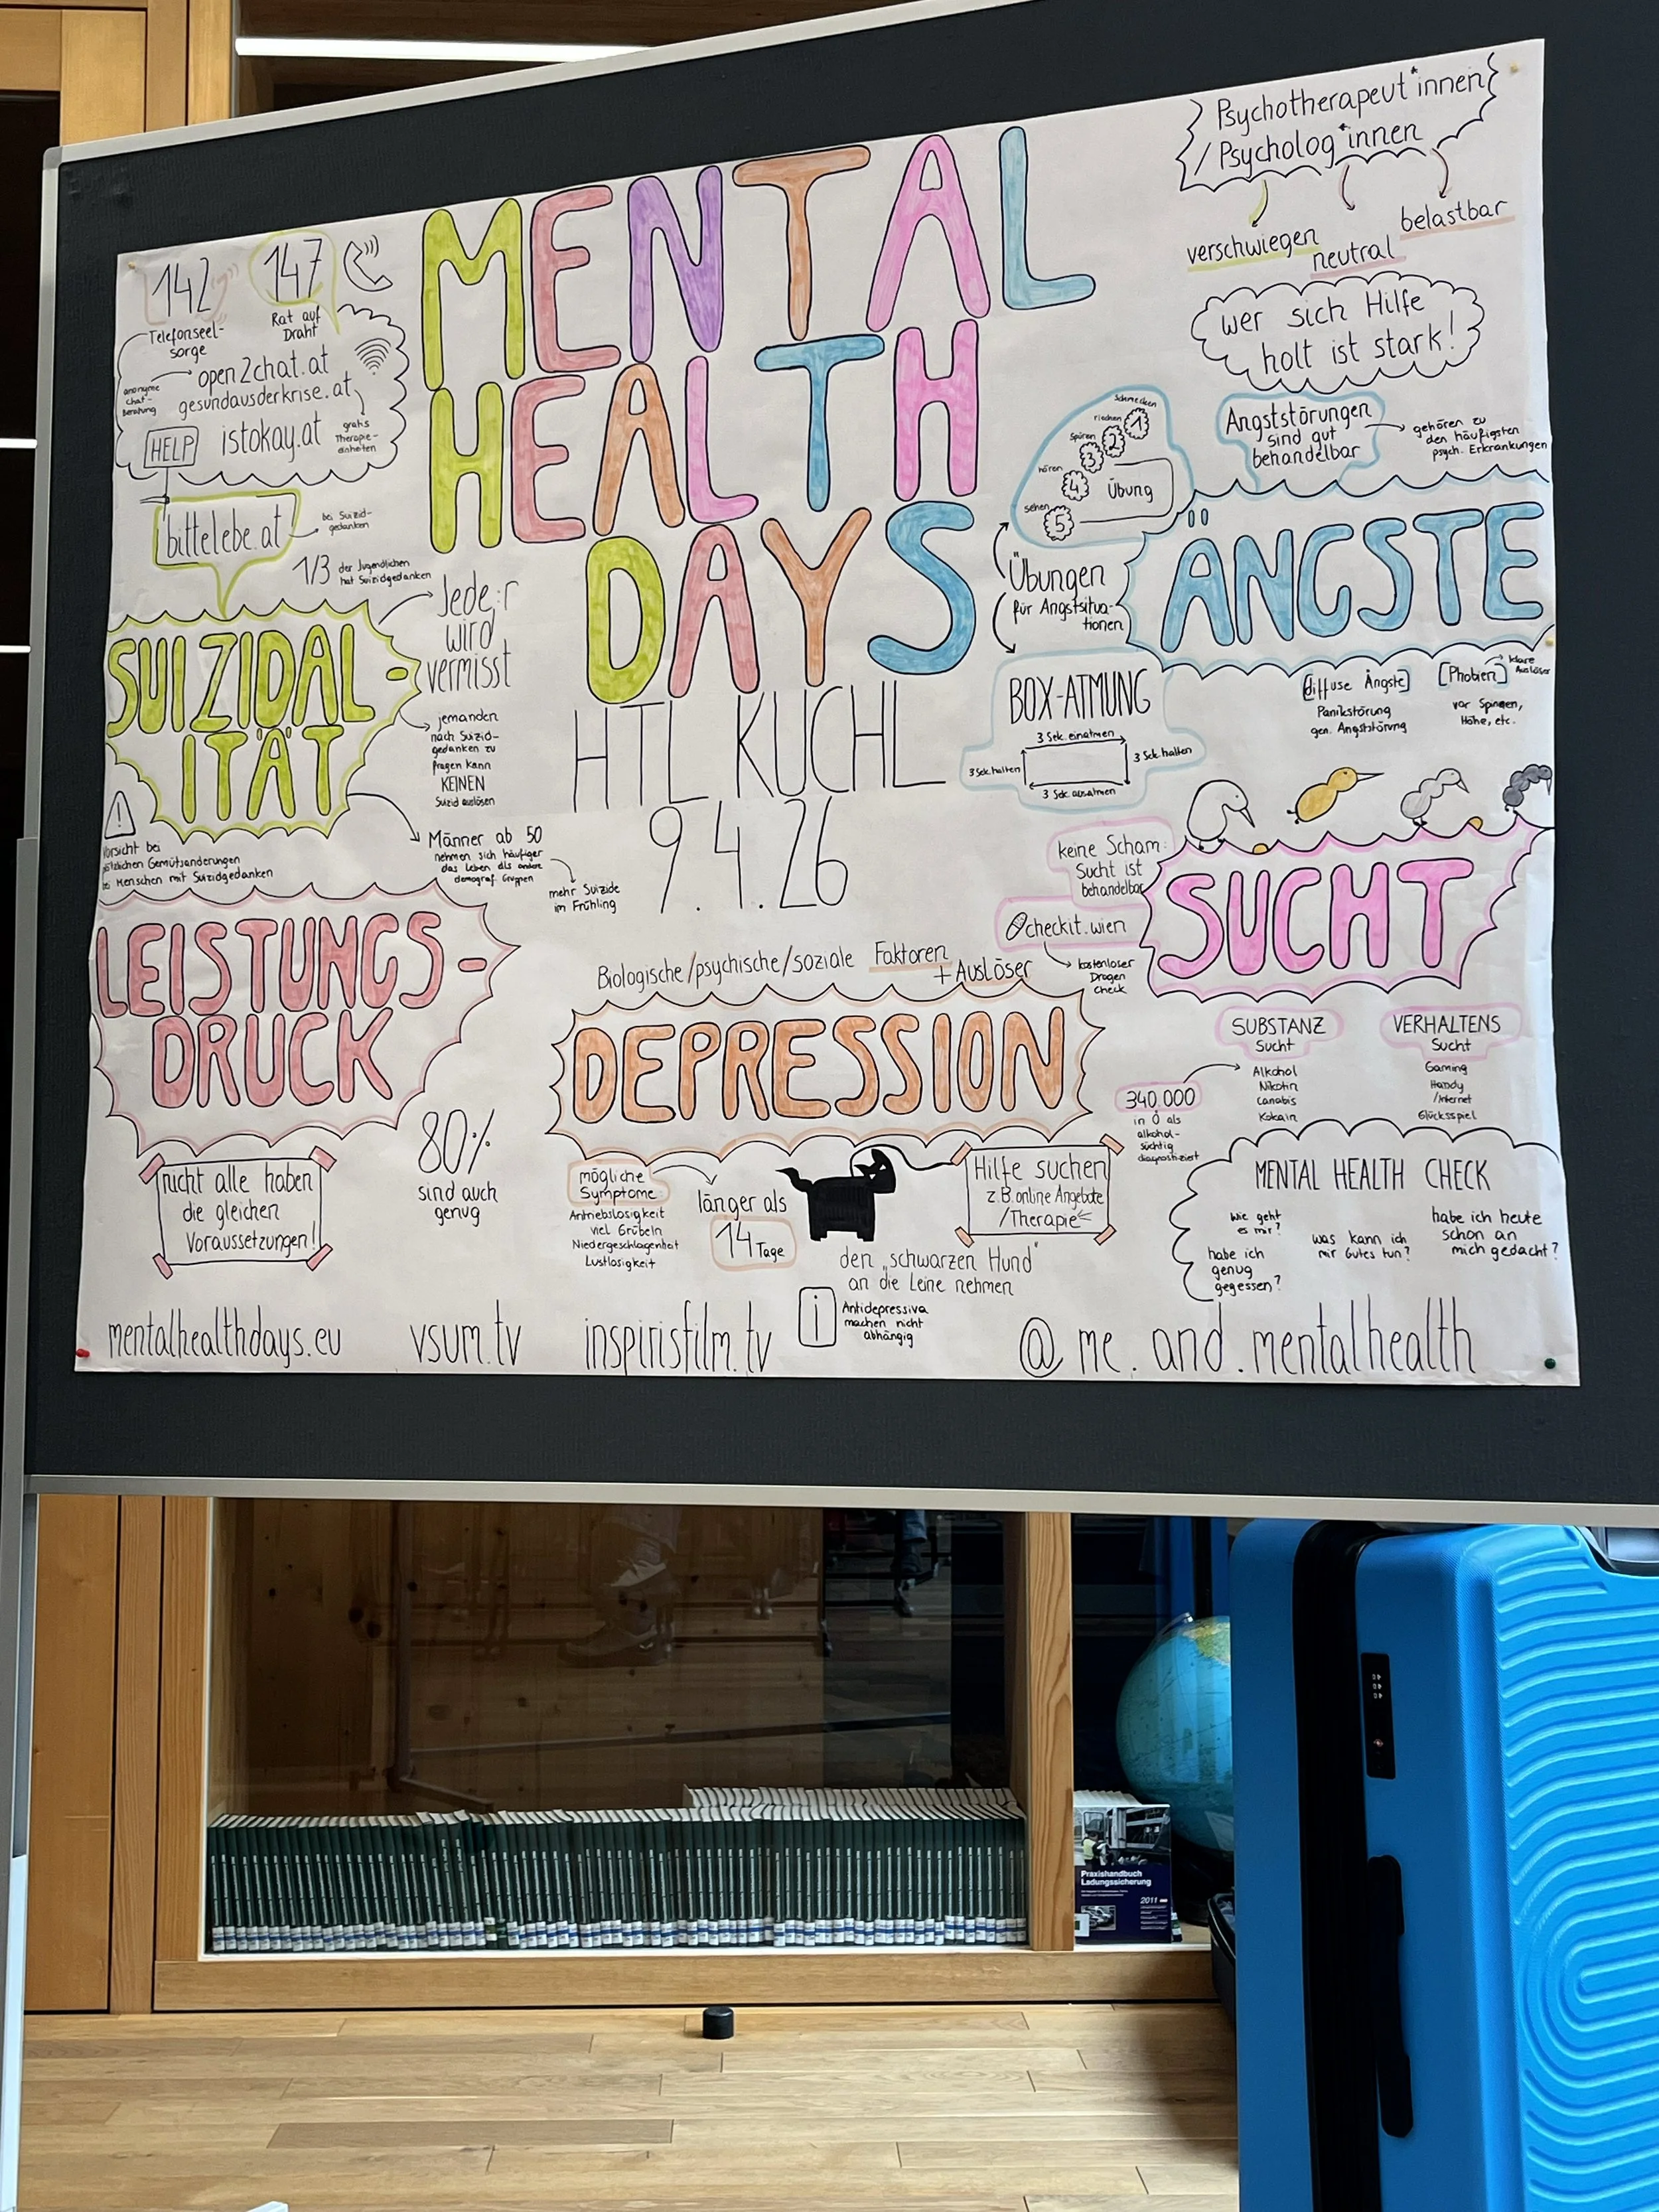 MENTAL
HEALTH
DAYS
HTL KUCHL
9.4.26
142
Telefonseel-
sorge
147
Rat auf
Draht
anonyme
chat-
Beratung
open2chat.at
gesundausderkrise.at
gratis
Therapie-
einheiten
HELP
istokay.at
bittelebe.at
bei Suizid-
gedanken
1/3 der Jugendlichen
hat Suizidgedanken
SUIZIDAL-
ITÄT
Jede:r
wird
vermisst
jemanden
nach Suizid-
gedanken zu
fragen kann
KEINEN
Suizid auslösen
Männer ab 50
nehmen sich häufiger
das Leben als andere
demograf. Gruppen
mehr Suizide
im Frühling
!
Vorsicht bei
plötzlichen Gemütsänderungen
bei Menschen mit Suizidgedanken
LEISTUNGS-
DRUCK
nicht alle haben
die gleichen
Voraussetzungen!
80%
sind auch
genug
Psychotherapeut*innen
/Psycholog*innen
verschwiegen
neutral
belastbar
wer sich Hilfe
holt ist stark!
Angststörungen
sind gut
behandelbar
gehören zu
den häufigsten
psych. Erkrankungen
ÄNGSTE
schmecken
1
riechen
2
spüren
3
hören
4
sehen
5
Übung
Übungen
für Angstsitua-
tionen
BOX-ATMUNG
3 Sek. einatmen
3 Sek. halten
3 Sek. ausatmen
3 Sek. halten
[diffuse Ängste]
Panikstörung
gen. Angststörung
[Phobien]
klare
Auslöser
vor Spinnen,
Höhe, etc.
SUCHT
keine Scham:
Sucht ist
behandelbar
checkit.wien
kostenloser
Drogen
Check
SUBSTANZ
Sucht
Alkohol
Nikotin
Canabis
Kokain
VERHALTENS
Sucht
Gaming
Handy
/Internet
Glücksspiel
340.000
in Ö als
alkohol-
süchtig
diagnostiziert
Biologische/psychische/soziale Faktoren
+ Auslöser
DEPRESSION
mögliche
Symptome:
Antriebslosigkeit
viel Grübeln
Niedergeschlagenheit
Lustlosigkeit
länger als
14 Tage
Hilfe suchen
z.B. online Angebote
/Therapie
den "schwarzen Hund"
an die Leine nehmen
i
Antidepressiva
machen nicht
abhängig
MENTAL HEALTH CHECK
wie geht
es mir?
habe ich
genug
gegessen?
was kann ich
mir Gutes tun?
habe ich heute
schon an
mich gedacht?
mentalhealthdays.eu
vsum.tv
inspirisfilm.tv
@me.and.mentalhealth
Praxishandbuch
Ladungssicherung
2011